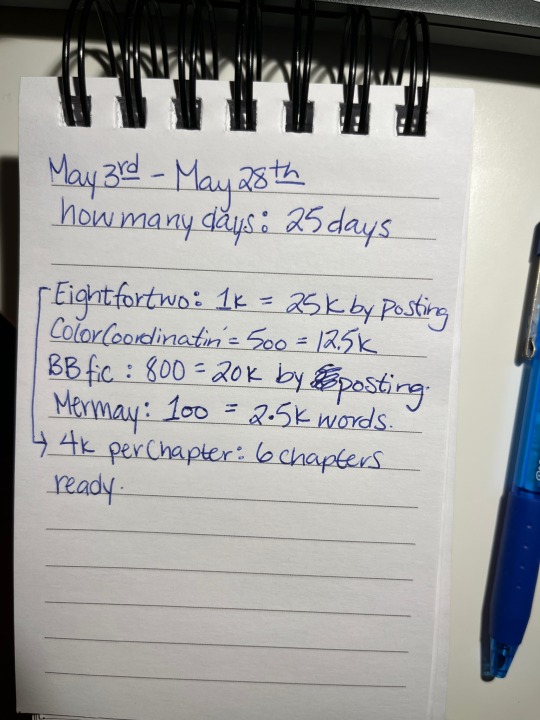 May 3rd - May 28th
how many days: 25 days
Eightfortwo: 1k = 25k by posting
ColorCoordinatin' = 500 = 12.5k
BB fic: 800 = 20k by posting.
Mermay: 100 = 2.5k words.
4k per chapter: 6 chapters
ready.